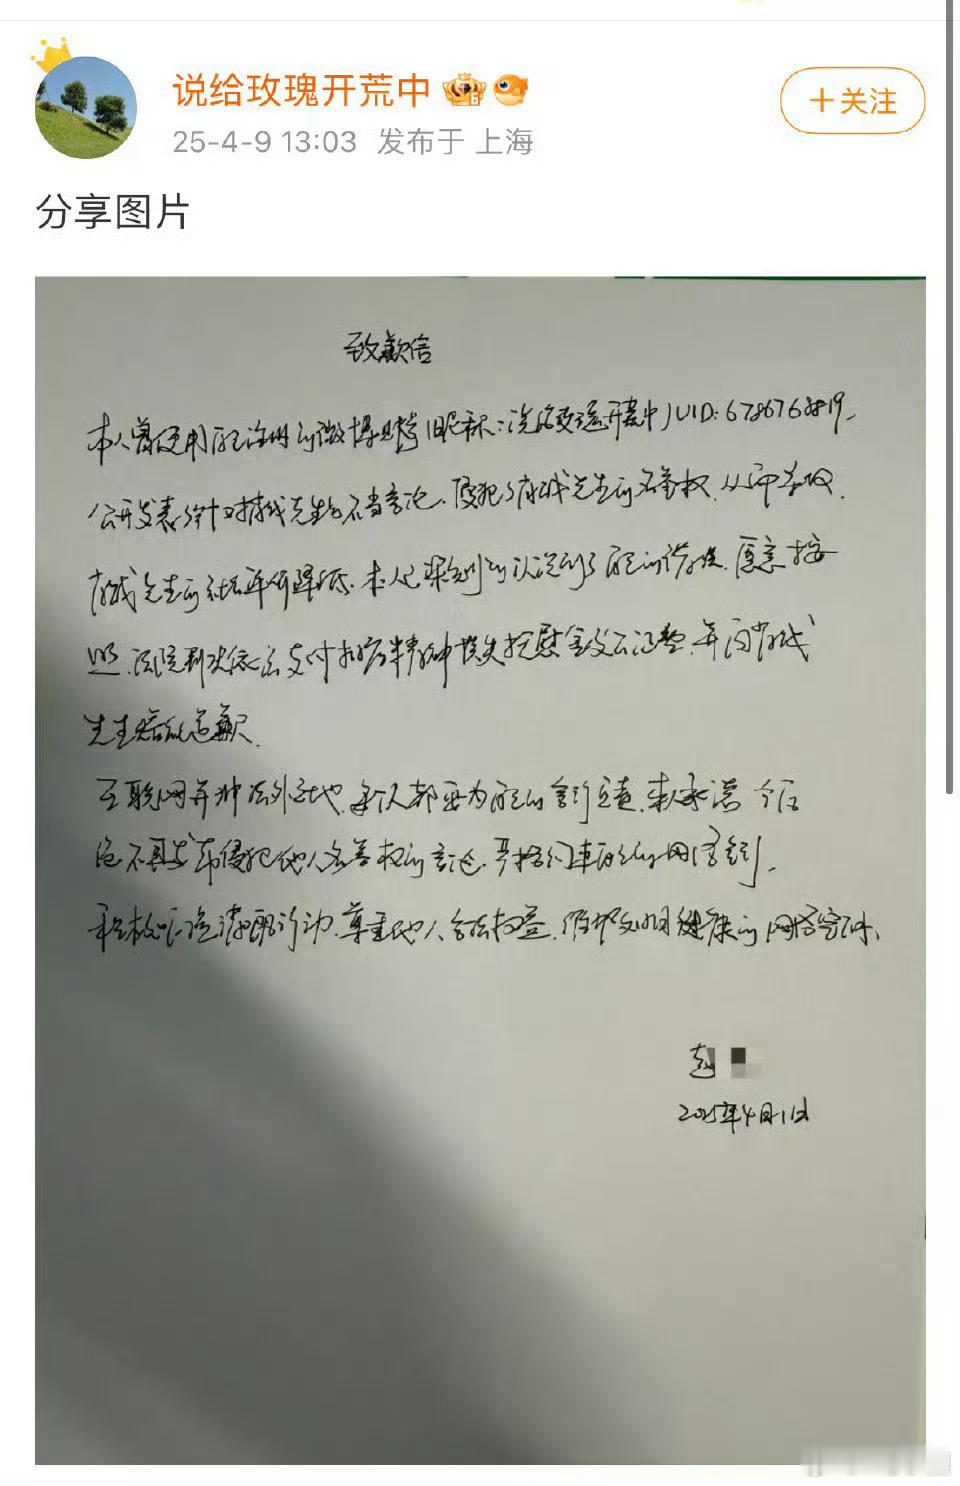 说给玫瑰开荒中
+关注
25-4-9 13:03 发布于 上海
分享图片
致歉信
本人曾使用自己注册的微博账号(昵称:说给玫瑰开荒中)UID:6786763819,
公开发表针对 先生的不当言论,侵犯了 先生的名誉权,从而导致
先生的社会评价降低,本人已深刻的认识到了自己的错误,愿意按
照法院判决依法支付 精神损失抚慰金及公证费,并向
先生赔礼道歉。
互联网并非法外之地,每个人都要为自己的言行负责,本人承诺今后
绝不再发布侵犯他人名誉权的言论,严格约束自己的网络言行,
积极 行动,尊重他人合法权益,维护文明健康的网络空间。
赵
2025年4月1日